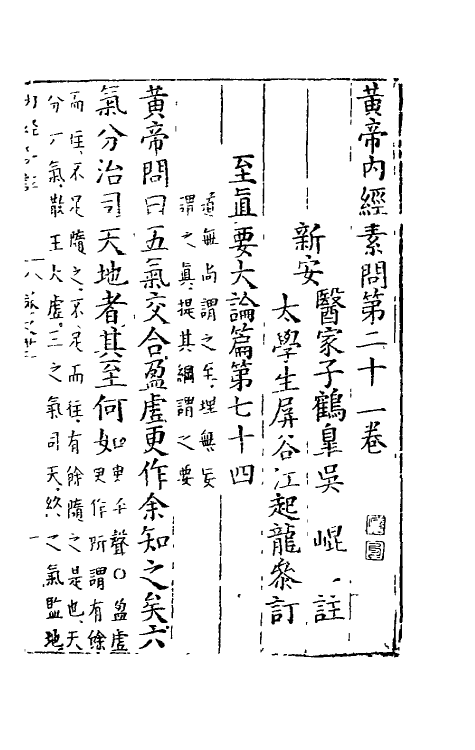 黃帝内經素問第二十一卷
新安
醫家子鶴皐吳　崐　註
太學生屏谷江起龍叅訂
至眞要大論篇第七十四
道無尚謂之至理無妄
謂之眞提其綱謂之要
黃帝問曰五氣交合盈虛更作余知之矣六
氣分治司天地者其至何如
更平聲○盈虛
更作所謂有餘
而往不足隨之不足而往有餘隨之是也天
分六氣散主太虛三之氣司天終之氣監地